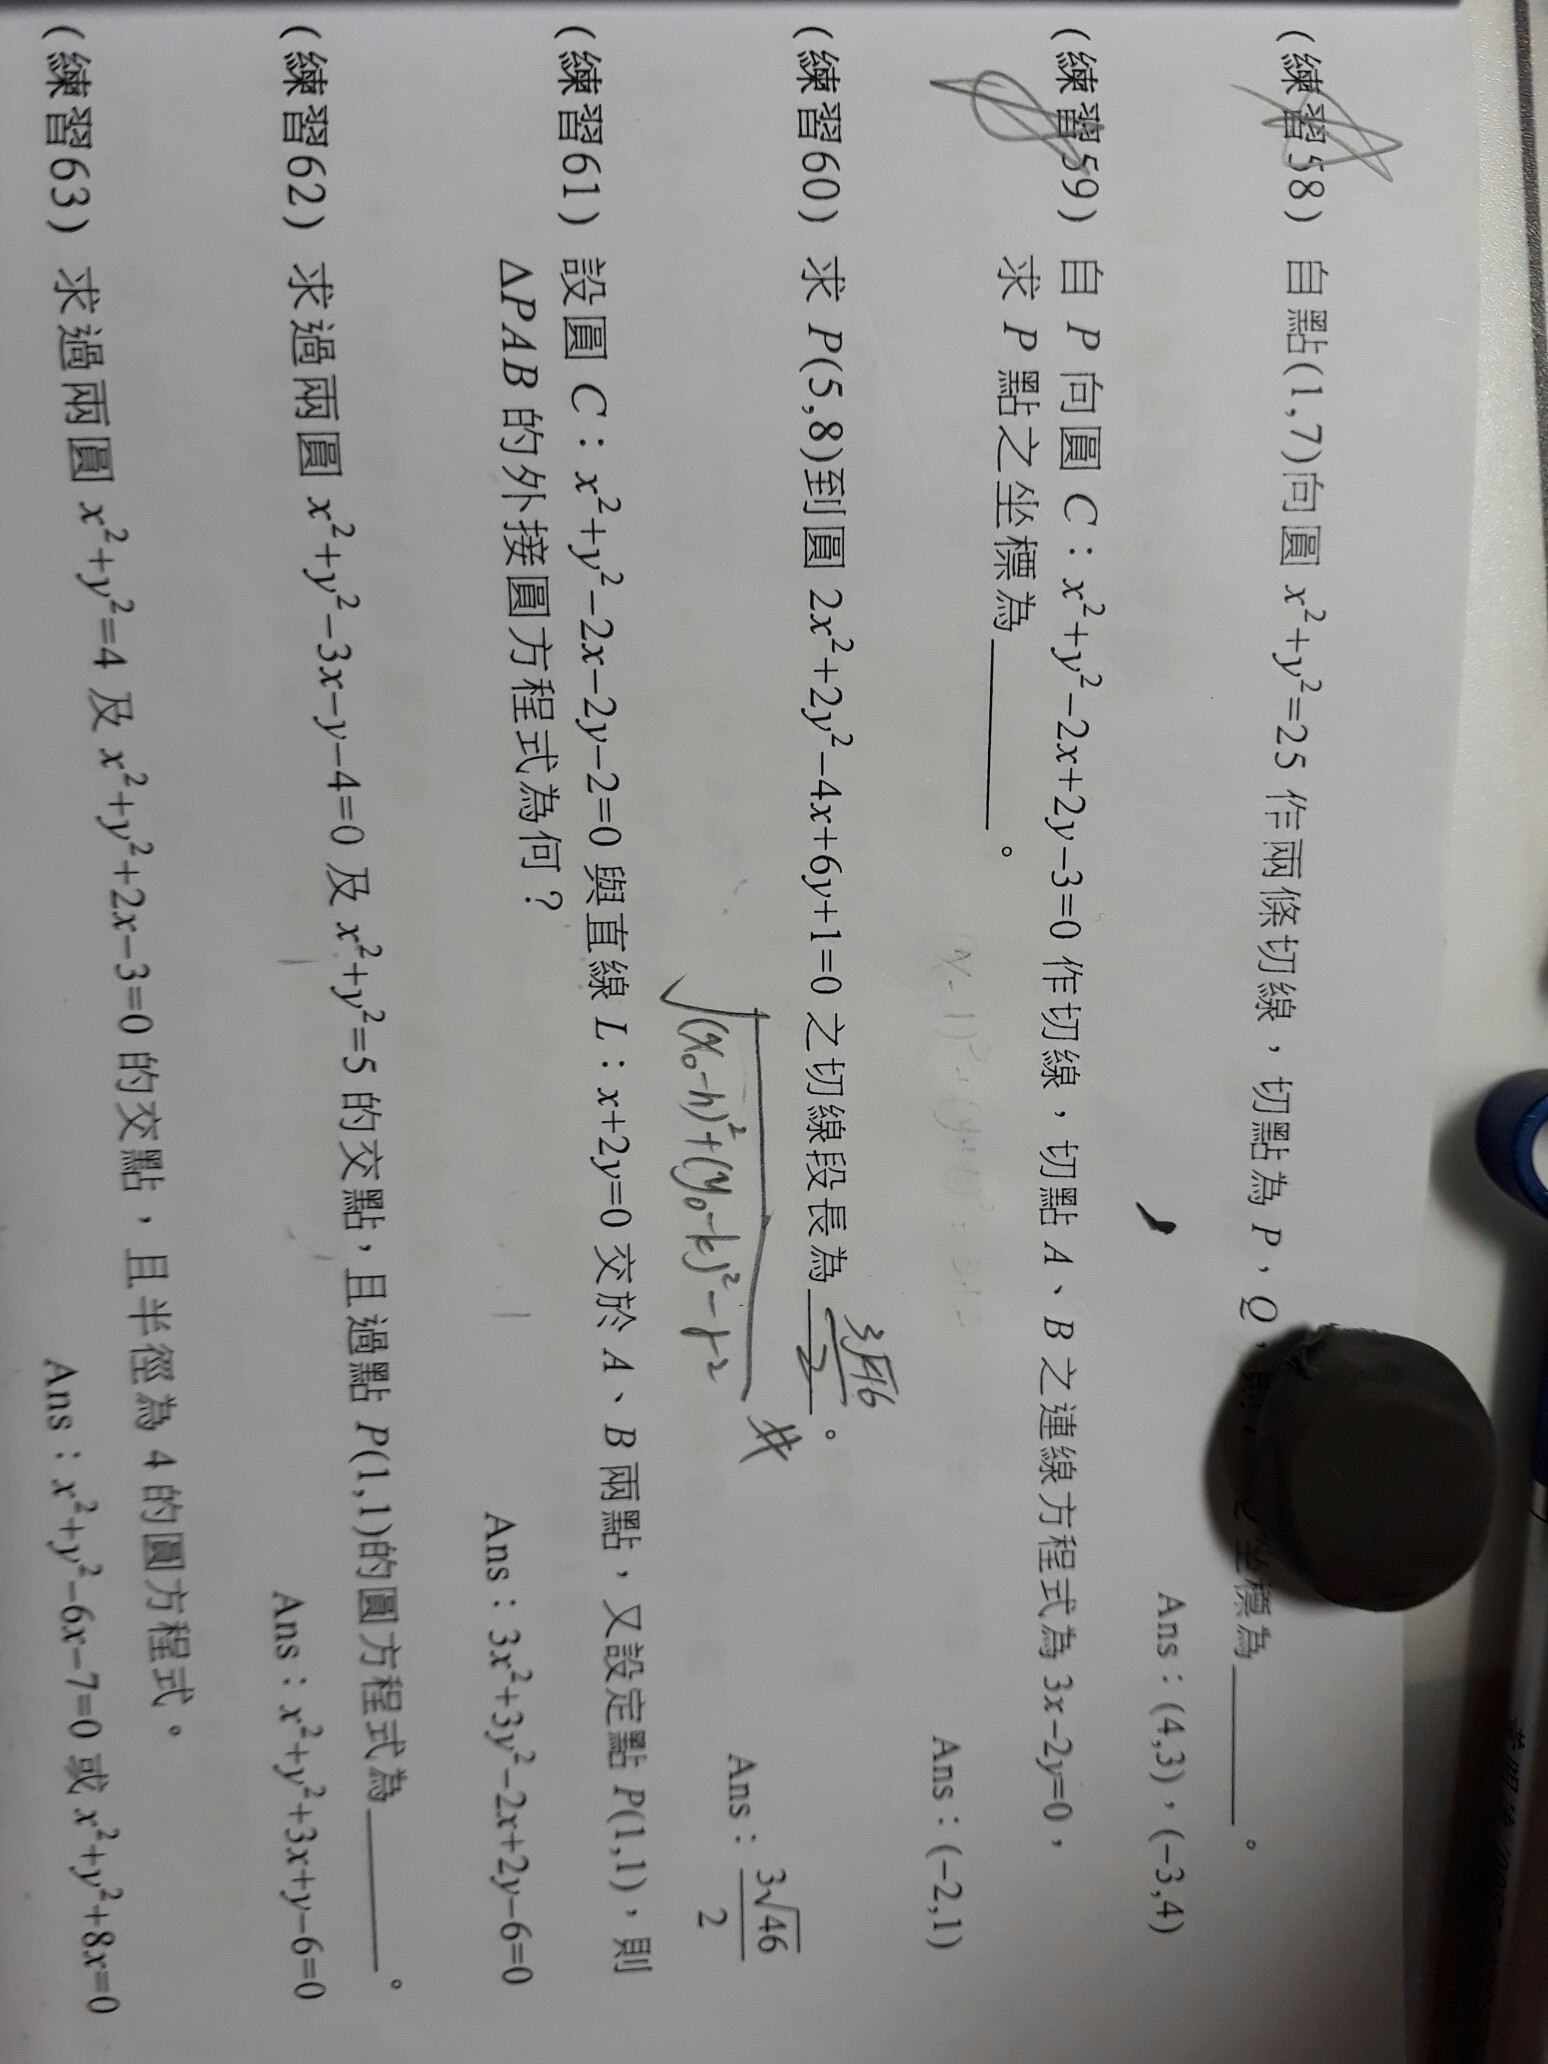 (練習58) 自點(1,7)向圓 x²+y²=25 作兩條切線,切點為 P,Q, 坐標為______。
Ans:(4,3),(−3,4)
(練習59) 自 P 向圓 C:x²+y²−2x+2y−3=0 作切線,切點 A、B 之連線方程式為 3x−2y=0,
求 P 點之坐標為______。
Ans:(−2,1)
(練習60) 求 P(5,8)到圓 2x²+2y²−4x+6y+1=0 之切線段長為 3√46/2 。
√(x₀−h)²+(y₀−k)²−r² #
Ans:3√46/2
(練習61) 設圓 C:x²+y²−2x−2y−2=0 與直線 L:x+2y=0 交於 A、B 兩點,又設定點 P(1,1),則
ΔPAB 的外接圓方程式為何?
Ans:3x²+3y²−2x+2y−6=0
(練習62) 求過兩圓 x²+y²−3x−y−4=0 及 x²+y²=5 的交點,且過點 P(1,1)的圓方程式為______。
Ans:x²+y²+3x+y−6=0
(練習63) 求過兩圓 x²+y²=4 及 x²+y²+2x−3=0 的交點,且半徑為 4 的圓方程式。
Ans:x²+y²−6x−7=0 或 x²+y²+8x=0